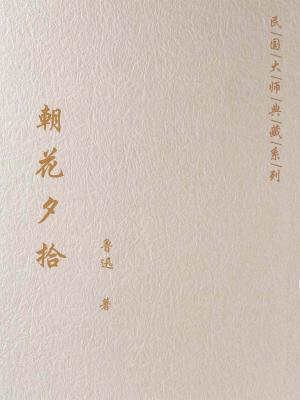 民国大师典藏系列
朝花夕拾
鲁迅 著